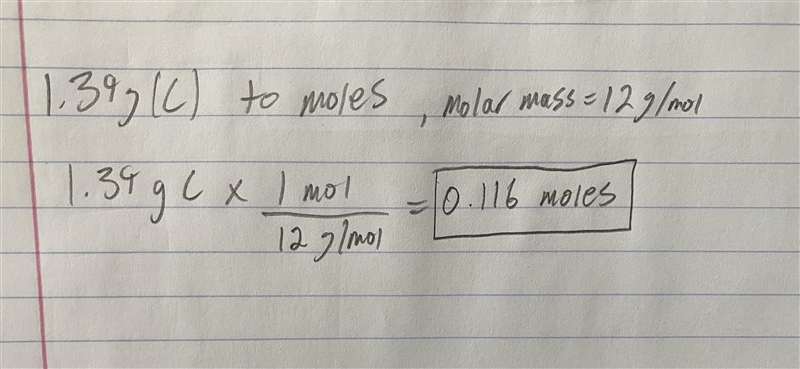 1.39g (C) to moles, molar mass = 12 g/mol
1.39 g C x 1 mol / 12 g/mol = 0.116 moles